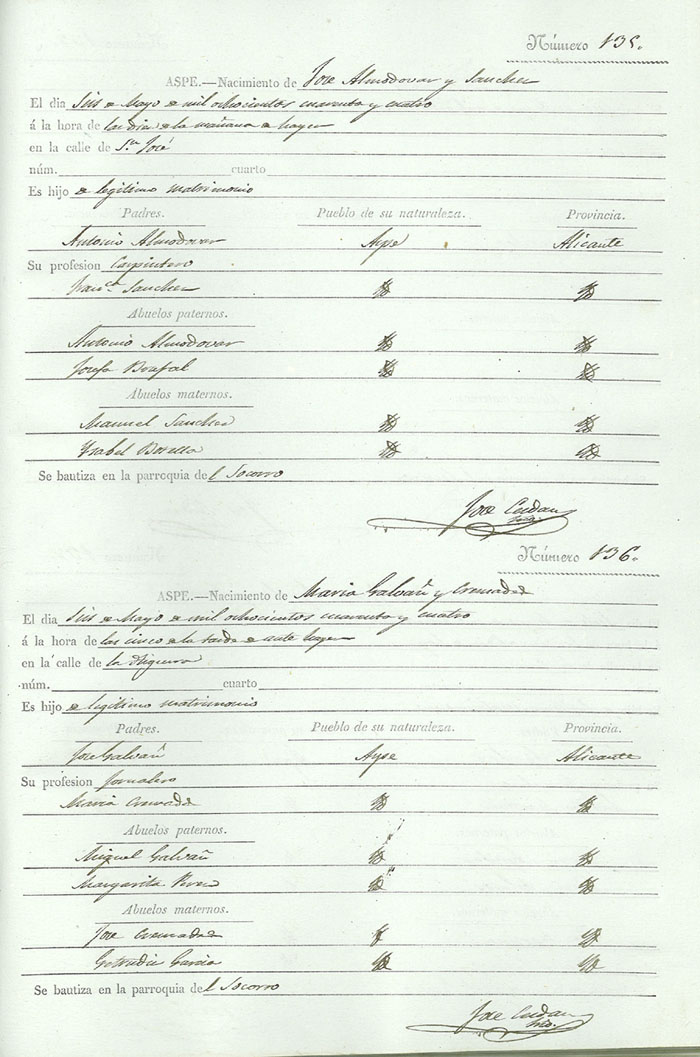 Número 135.
ASPE.—Nacimiento de Jose Almodovar y Sanchez
El dia seis de Mayo de mil ochocientos cuarenta y cuatro
á la hora de las diez de la mañana de hayer
en la calle de Sn José
núm. cuarto
Es hijo de legitimo matrimonio
Padres. Pueblo de su naturaleza. Provincia.
Antonio Almodovar Aspe Alicante
Su profesion Carpintero
Franca Sanchez
Abuelos paternos.
Antonio Almodovar
Josefa
Abuelos maternos.
Manuel Sanchez
Ysabel
Se bautiza en la parroquia del Socorro
Jose
Número 136.
ASPE.—Nacimiento de Maria Galvañ y Cremades
El dia seis de Mayo de mil ochocientos cuarenta y cuatro
á la hora de las cinco de la tarde de ante hayer
en la calle de la Higuera
núm. cuarto
Es hijo de legitimo matrimonio
Padres. Pueblo de su naturaleza. Provincia.
Jose Galvañ Aspe Alicante
Su profesion Jornalero
Maria Cremades
Abuelos paternos.
Miguel Galvañ
Margarita
Abuelos maternos.
Jose Cremades
Getrudis Garcia
Se bautiza en la parroquia del Socorro
Jose